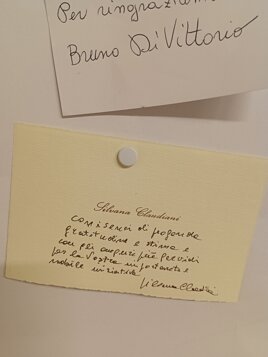 Per ringraziam
Bruno Di Vittorio
Silvana Claudiani
con i sensi di profonda
gratitudine e stima e
con gli auguri più fervidi
per la Vostra importante e
nobile iniziativa
Silvana Claudiani